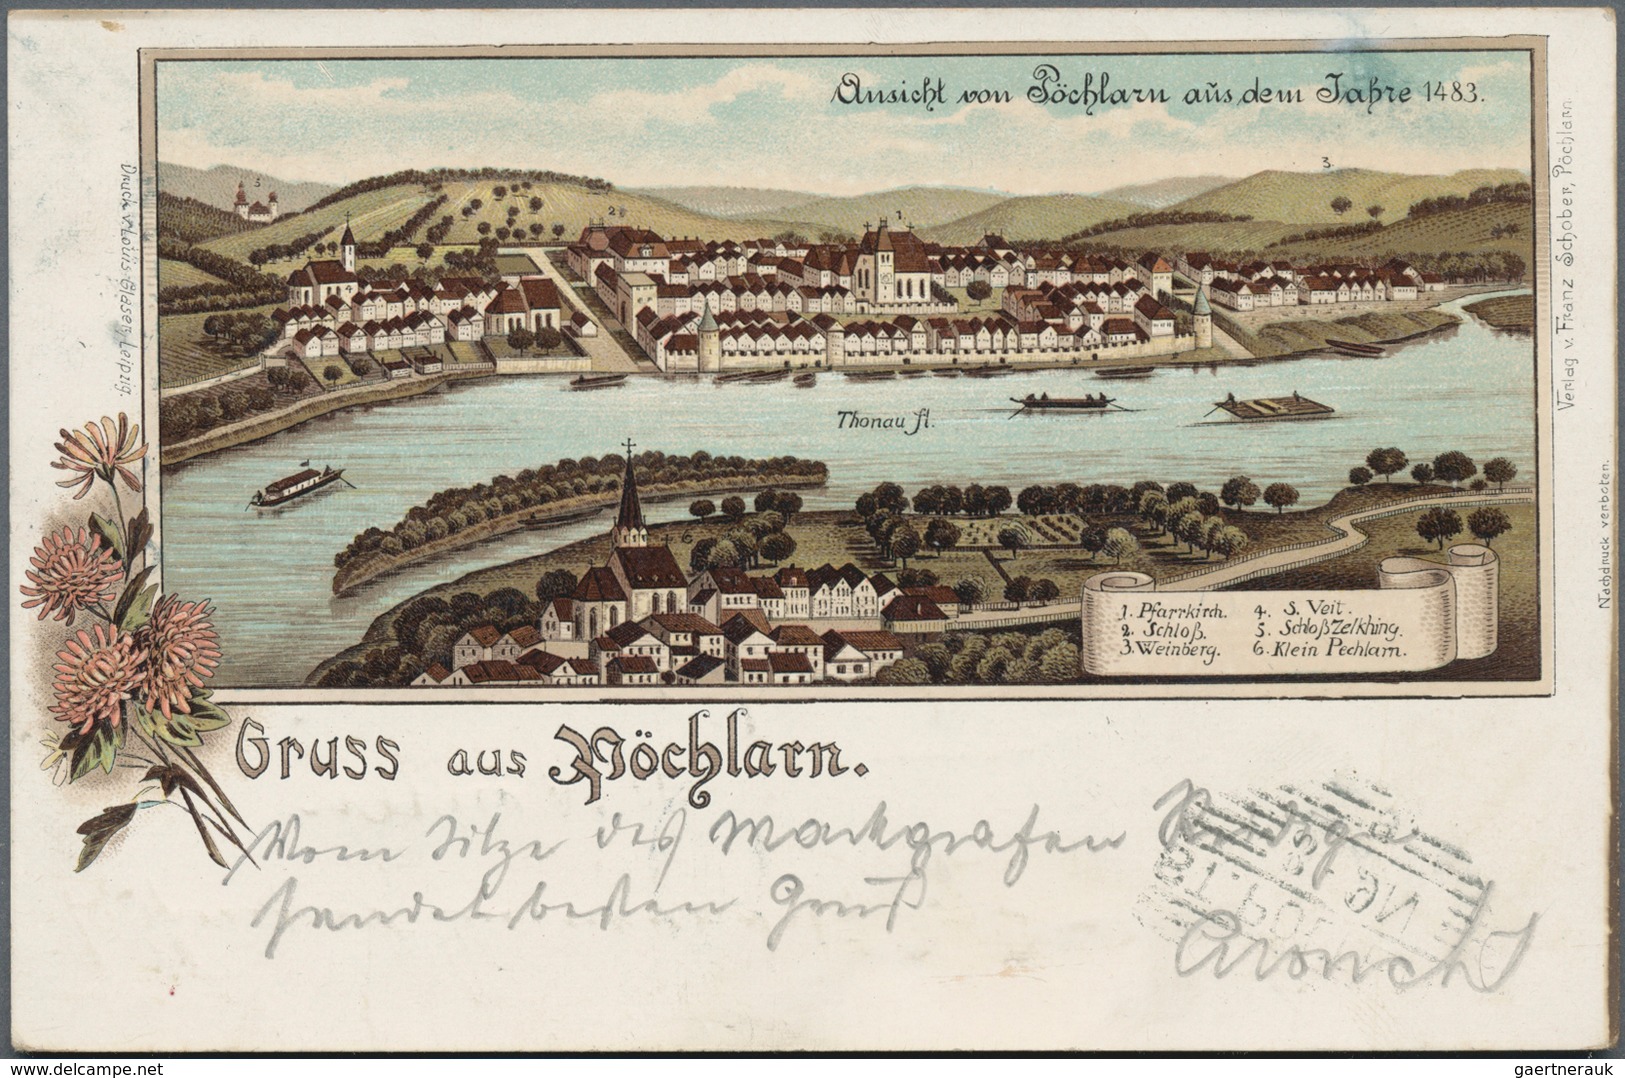 Ansicht von Pöchlarn aus dem Jahre 1483.
3.
5
2
1.
4
Thonau fl.
6
1. Pfarrkirch.
2. Schloß.
3. Weinberg.
4. S. Veit.
5. Schloß Zelkhing.
6. Klein Pechlarn.
Druck v. Louis Glaser, Leipzig.
Verlag v. Franz Schober, Pöchlarn
Nachdruck verboten.
Gruss aus Pöchlarn.
Vom Sitze des Markgrafen
sendet besten Gruß
delcampe.net
gaertnerauk